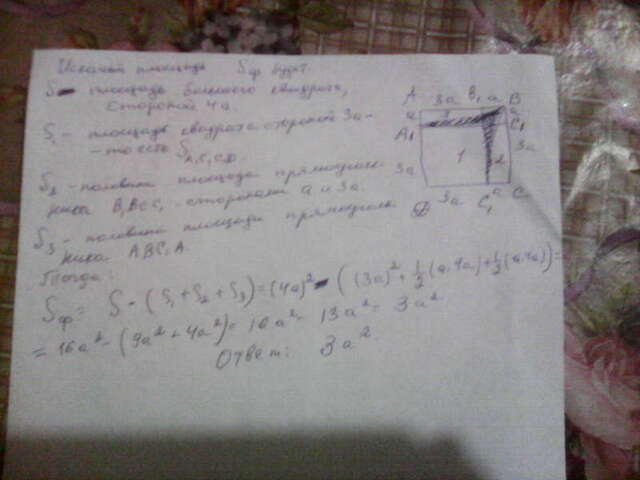 Искомая площадь Sф будет:
S - площадь большего квадрата,
стороной 4a.
S₁ - площадь квадрата стороной 3a -
- то есть S
S₂ - половина площади прямоуголь
ника B₁BCC₁ сторонами a и 3a.
S₃ - половина площади прямоуголь
ника ABC₁A.
Тогда:
Sф = S - (S₁ + S₂ + S₃) = (4a)² - ((3a)² + 1/2 (a·4a) + 1/2 (a·4a)) =
= 16a² - (9a² + 4a²) = 16a² - 13a² = 3a²
Ответ: 3a².
A 3a B₁ a B
a 3 a
A₁ C₁
3a 1 2 3a
D 3a C₁ a C